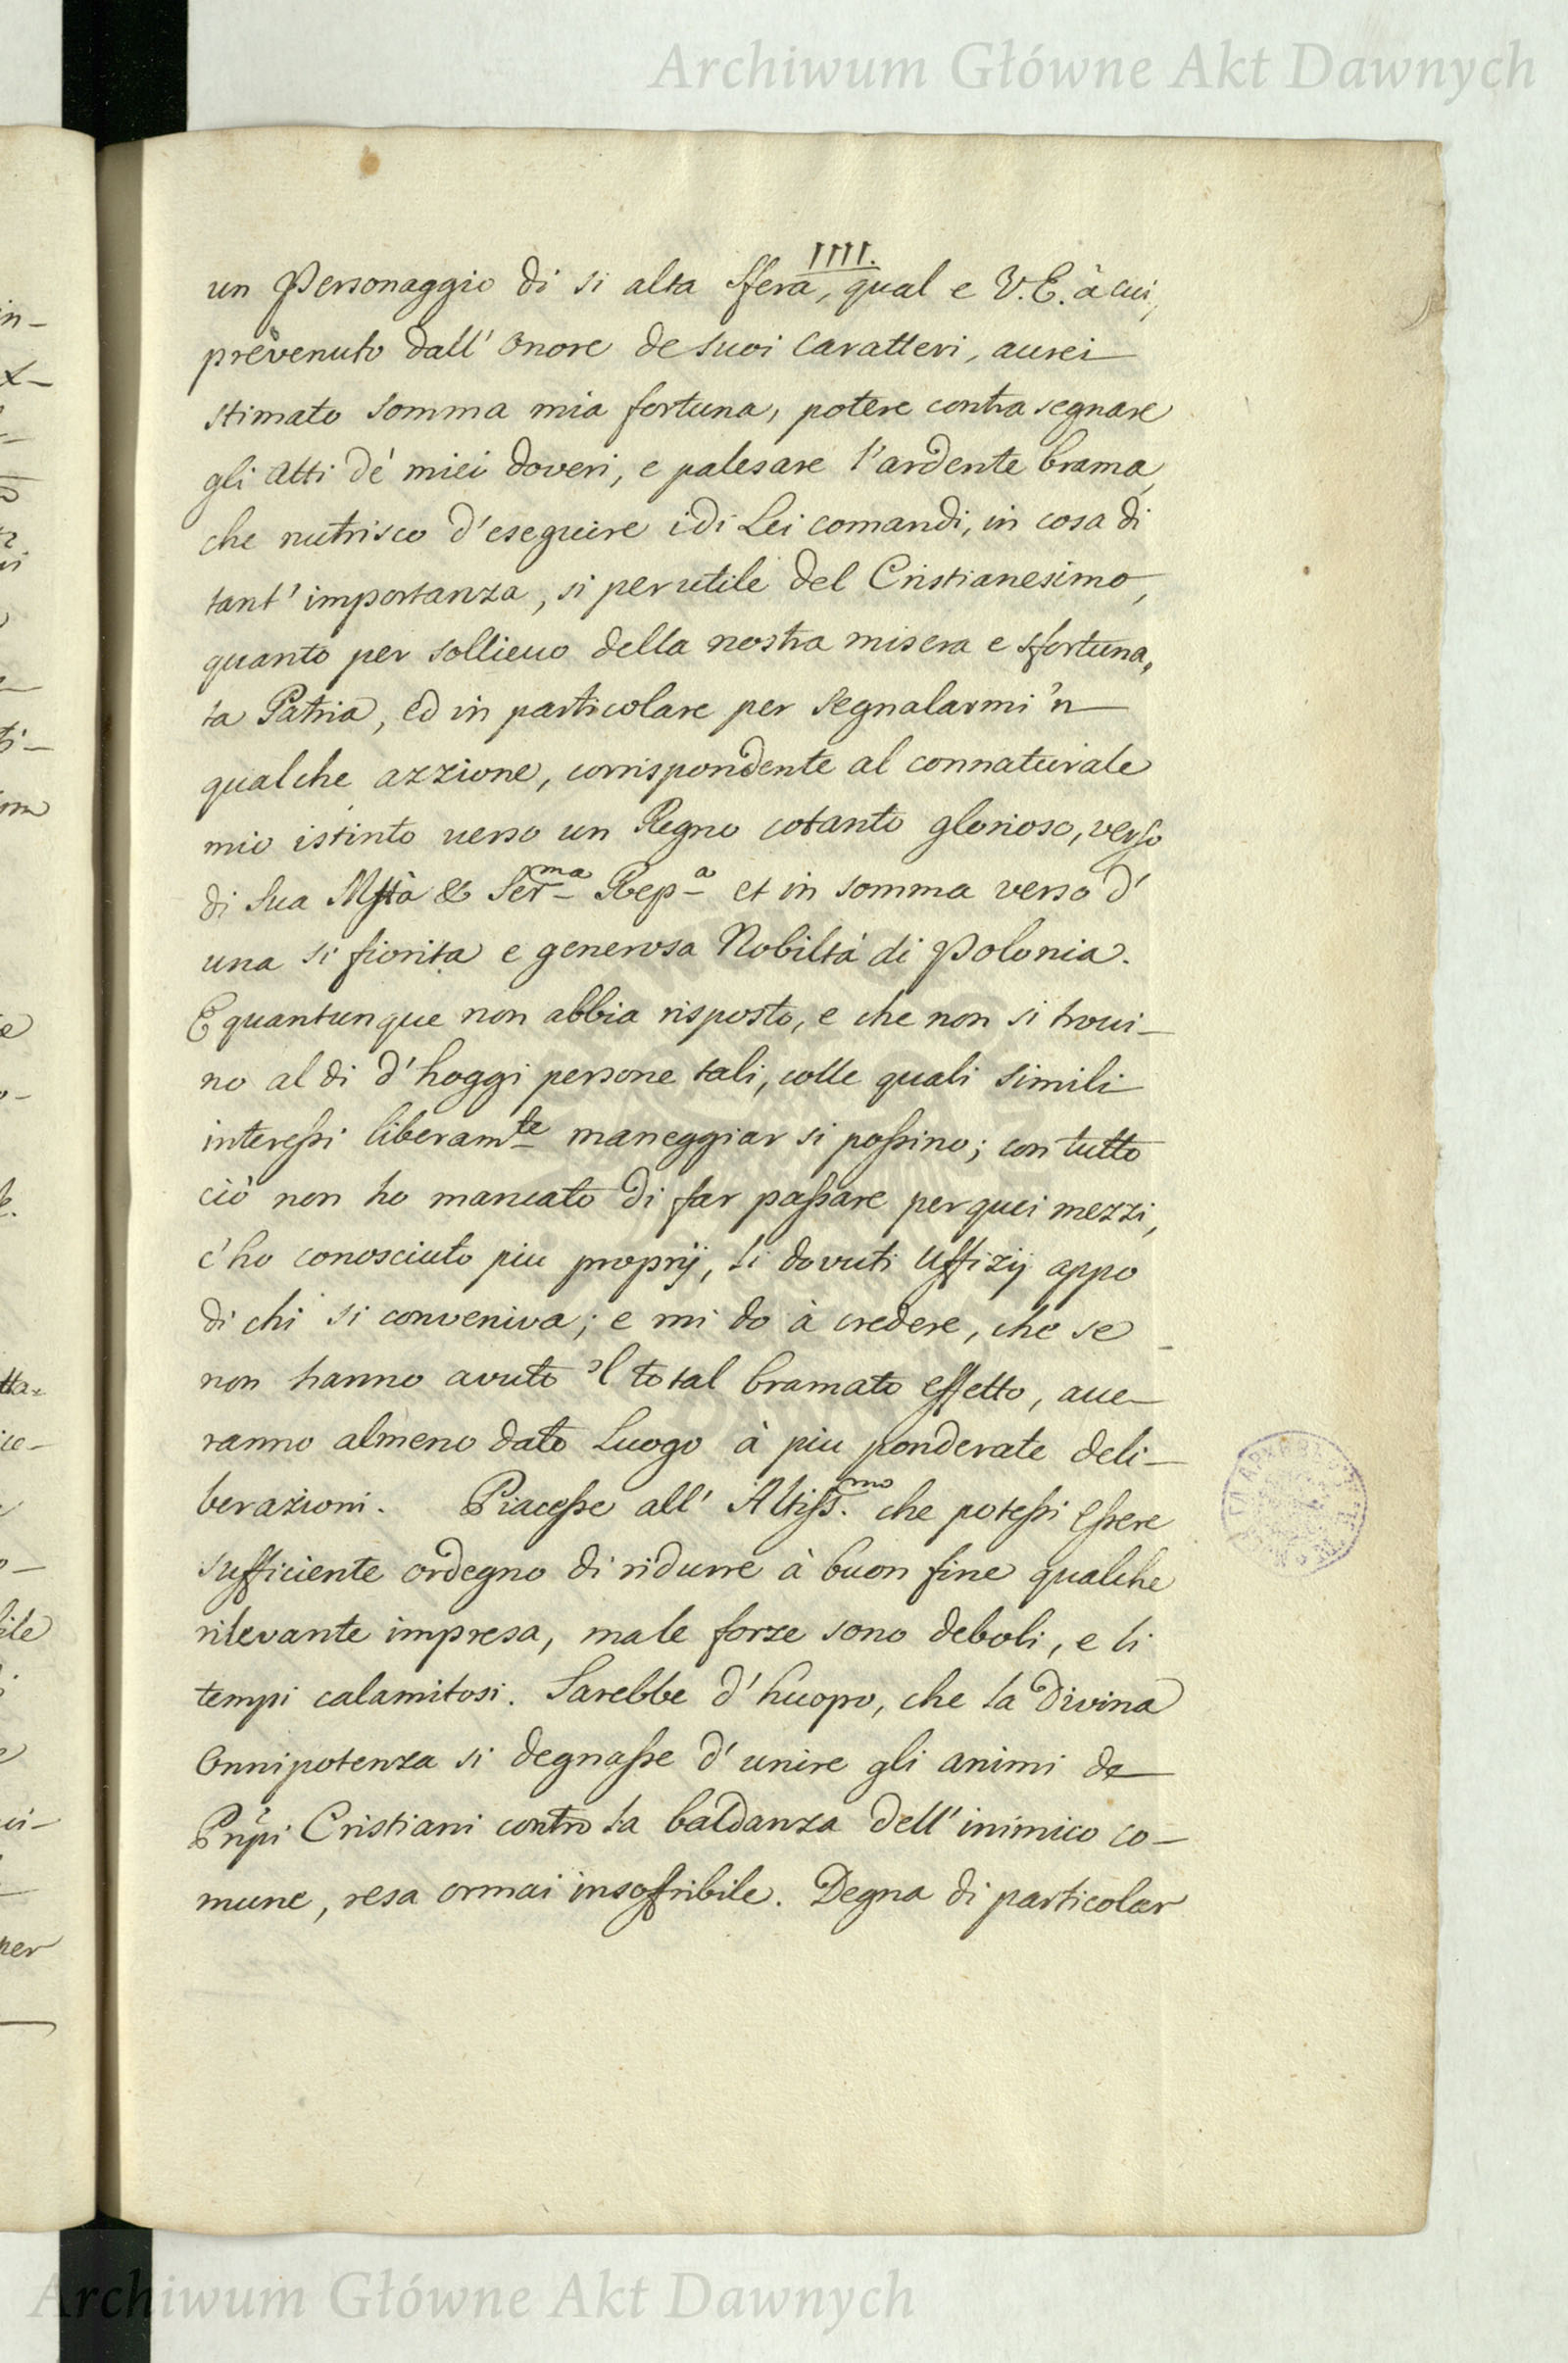 Archiwum Główne Akt Dawnych
IIII.
un Personaggio di si alta sfera, qual e V.E. à cui,
prevenuto dall' Onore de suoi Caratteri, aurei
stimato somma mia fortuna, potere contrasegnare
gli Atti de' miei doveri, e palesare l'ardente brama,
che nutrisco d'eseguire i di Lei comandi, in cosa di
tant' importanza, si per utile del Cristianesimo,
quanto per sollieuo della nostra misera e sfortuna,
ta Patria, ed in particolare per segnalarmi 'n
qualche azzione, corrispondente al connaturale
mio istinto uerso un Regno cotanto glorioso, verso
di Sua Mstà & Ser.ma Rep.a et in somma verso d'
una si fiorita e generosa Nobiltà di Polonia.
E quantunque non abbia risposto, e che non si troui-
no al di d'hoggi persone tali, colle quali simili
interessi liberam.te maneggiar si possino; con tutto
ciò non ho mancato di far passare per quei mezzi,
c'ho conosciuto piu proprij, li dovuti Uffizij appo
di chi si conveniva; e mi do à credere, che se
non hanno avuto 'l total bramato effetto, aue-
ranno almeno dato Luogo à piu ponderate deli-
berazioni. Piacesse all' Altiss.mo che potessi Essere
sufficiente ordegno di ridurre à buon fine qualche
rilevante impresa, ma le forze sono deboli, e li
tempi calamitosi. Sarebbe d'huopo, che la Divina
Onnipotenza si degnasse d'unire gli animi de
Prnpi Cristiani contro la baldanza dell'inimico co-
mune, resa ormai insoffribile. Degna di particolar
Archiwum Główne Akt Dawnych